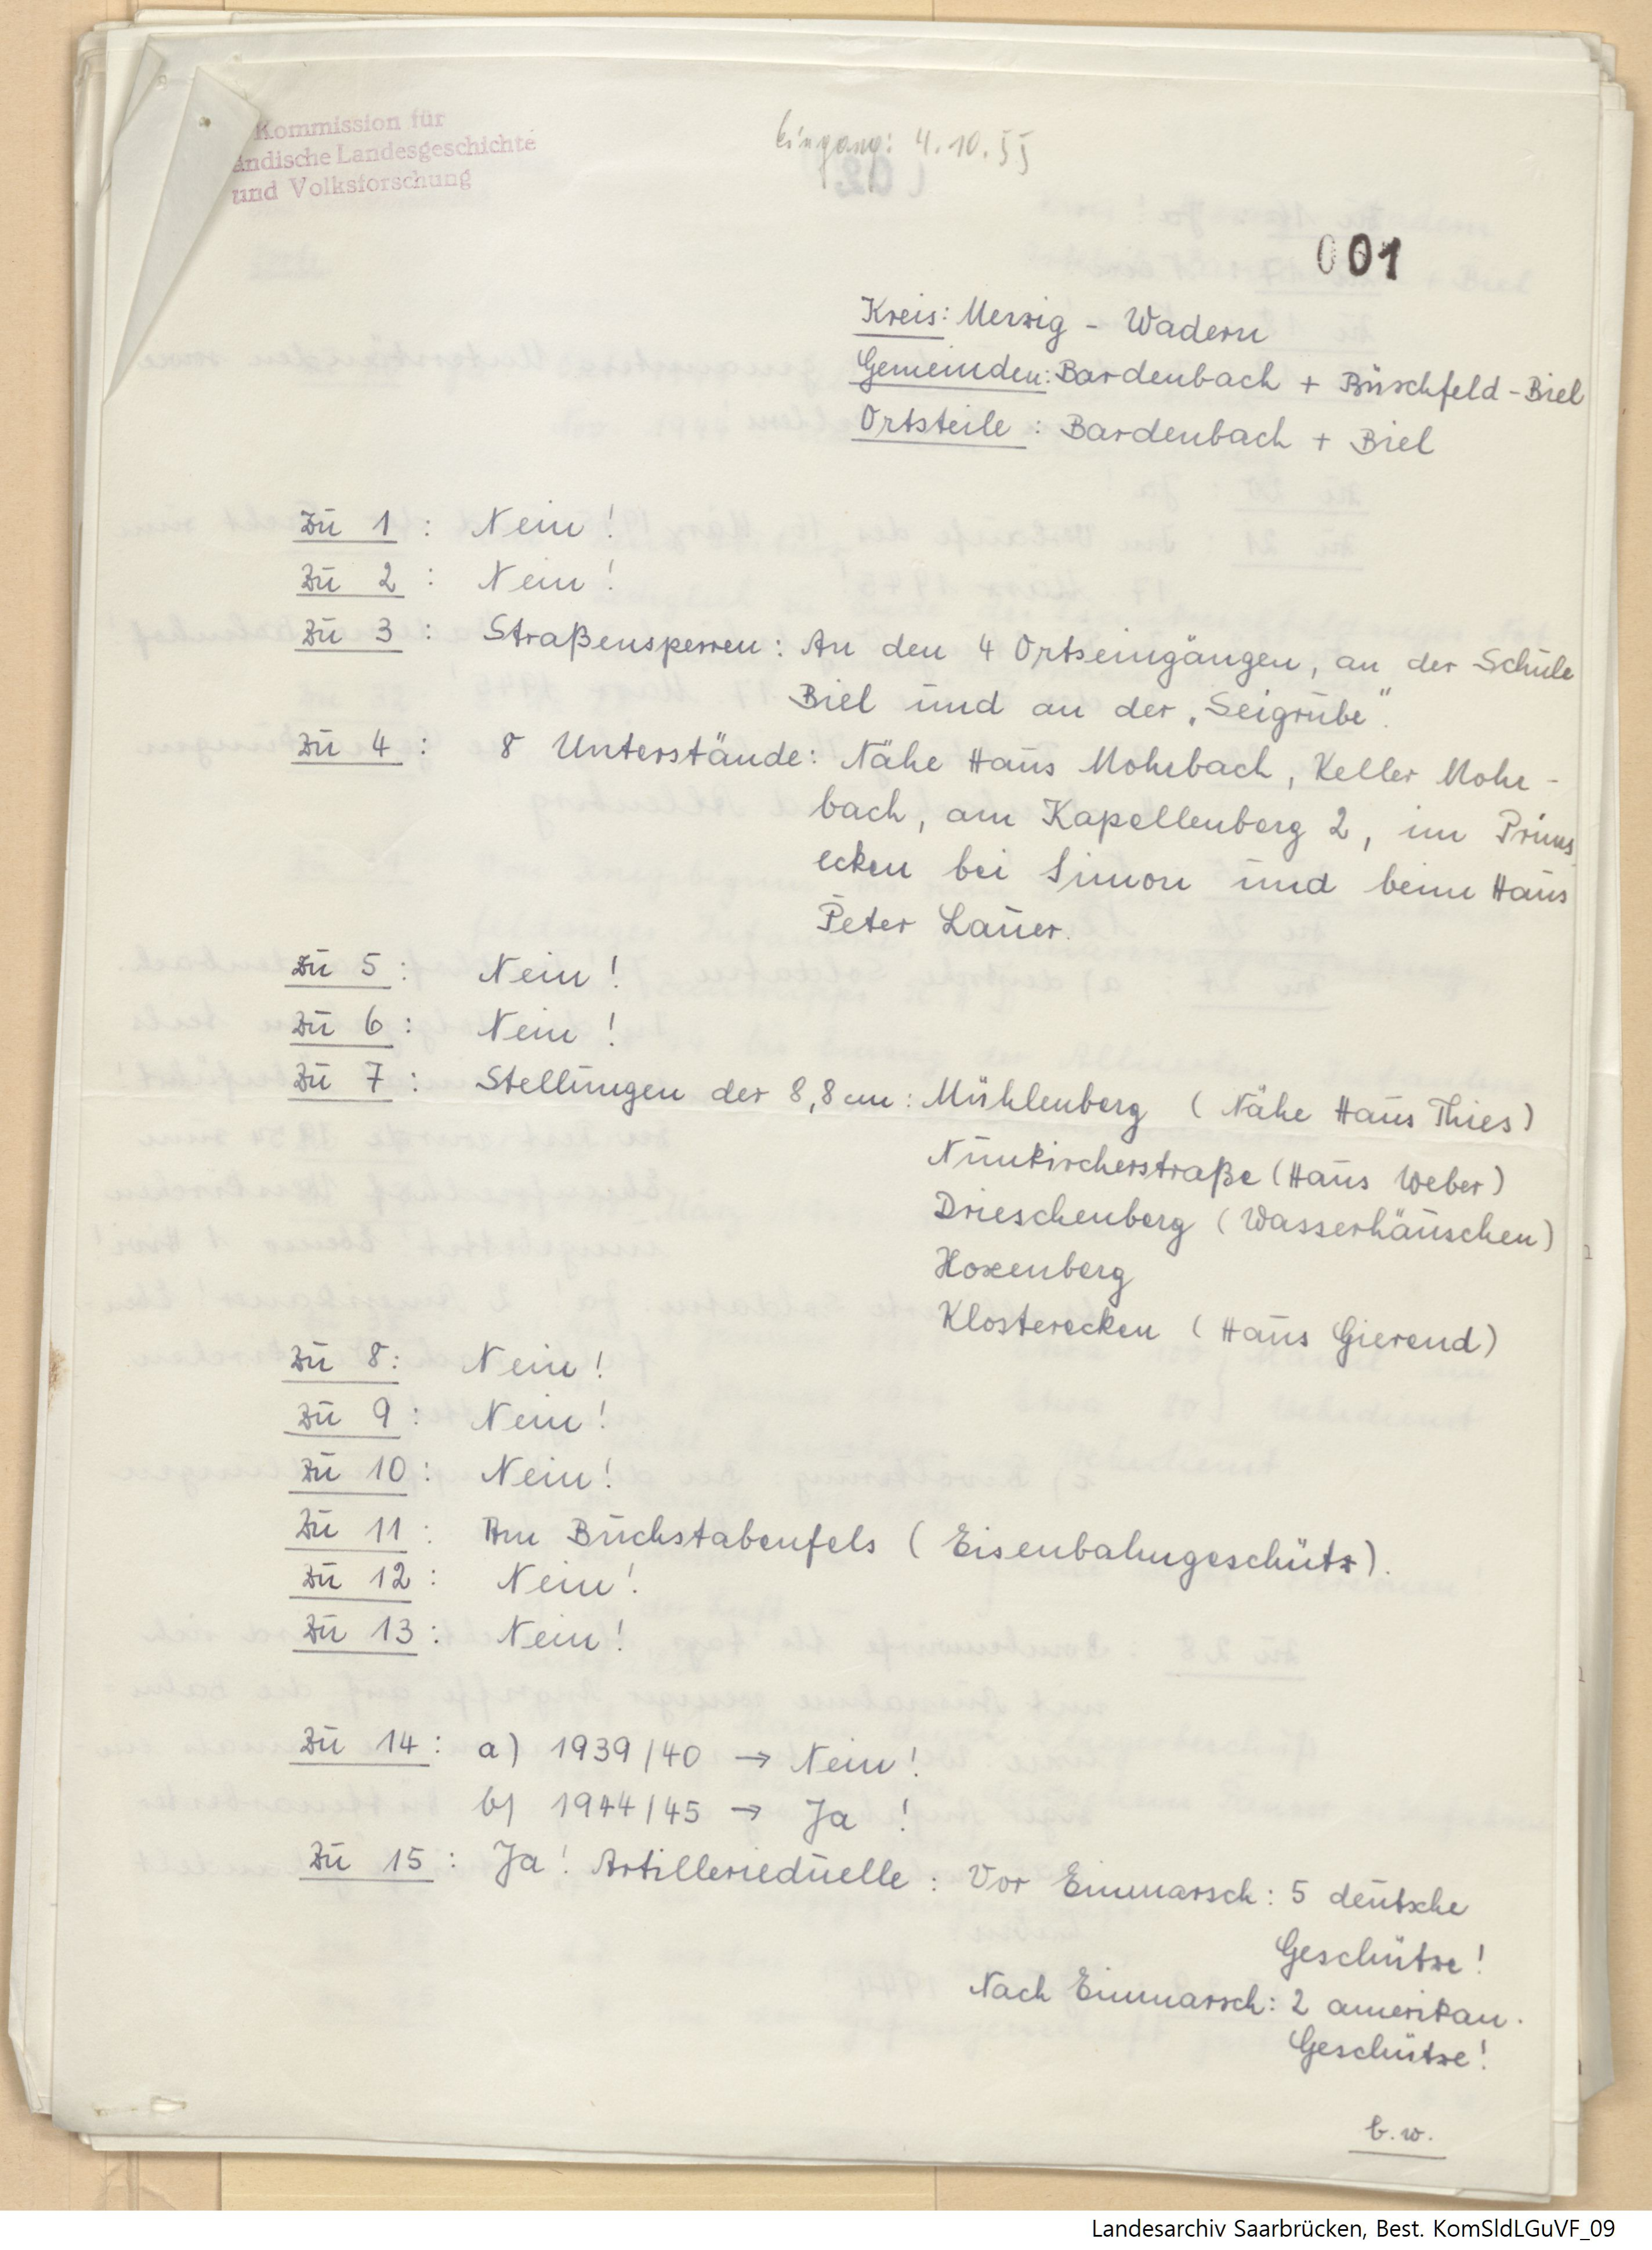 Kommission für
ändische Landesgeschichte
und Volksforschung
Eingang: 4.10.55
001
Kreis: Merzig - Wadern
Gemeinden: Bardenbach + Büschfeld-Biel
Ortsteile : Bardenbach + Biel
Zu 1 : Nein!
Zu 2 : Nein!
Zu 3 : Straßensperren: An den 4 Ortseingängen, an der Schule
Biel und an der „Seigrube".
Zu 4 : 8 Unterstände: Nähe Haus Mohrbach, Keller Mohr-
bach, am Kapellenberg 2, im Prims
ecken bei Simon und beim Haus
Peter Lauer.
Zu 5 : Nein!
Zu 6 : Nein!
Zu 7 : Stellungen der 8,8 cm: Mühlenberg (Nähe Haus Thies)
Nunkircherstraße (Haus Weber)
Drieschenberg (Wasserhäuschen)
Hoxenberg
Klosterecken (Haus Gierend)
Zu 8: Nein!
Zu 9 : Nein!
Zu 10 : Nein!
Zu 11 : Am Buchstabenfels (Eisenbahngeschütz).
Zu 12 : Nein!
Zu 13 : Nein!
Zu 14 : a) 1939/40 → Nein!
b) 1944/45 → Ja !
Zu 15 : Ja! Artillerieduelle : Vor Einmarsch: 5 deutsche
Geschütze!
Nach Einmarsch: 2 amerikan.
Geschütze!
b.w.
Landesarchiv Saarbrücken, Best. KomSldLGuVF_09